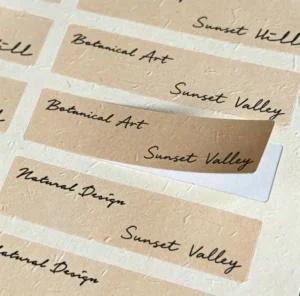 Sunset Hill
Hill
Botanical Art
Sunset Valley
Botanical Art
Sunset Valley
Natural Design
Sunset Valley
Natural Design